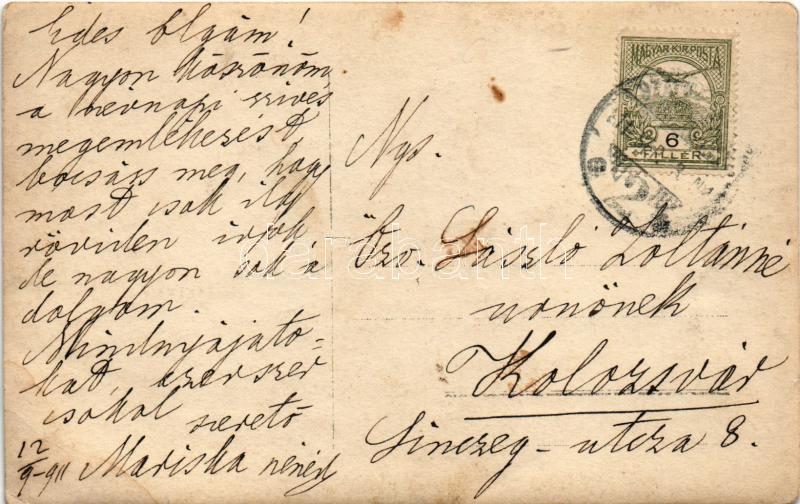 Édes Olgám!
Nagyon köszönöm
a névnapi szíves
megemlékezést
bocsáss meg, hogy
most csak ily
röviden írok
de nagyon sok a
dolgom.
Mindnyájato-
kat, ezerszer
csókol szerető
12/9-911 Mariska nénéd
MAGYAR·KIR·POSTA
6
FILLÉR
Ngs.
Özv. László Zoltánné
úrnőnek
Kolozsvár
Sinczeg-utcza 8.
darabanth